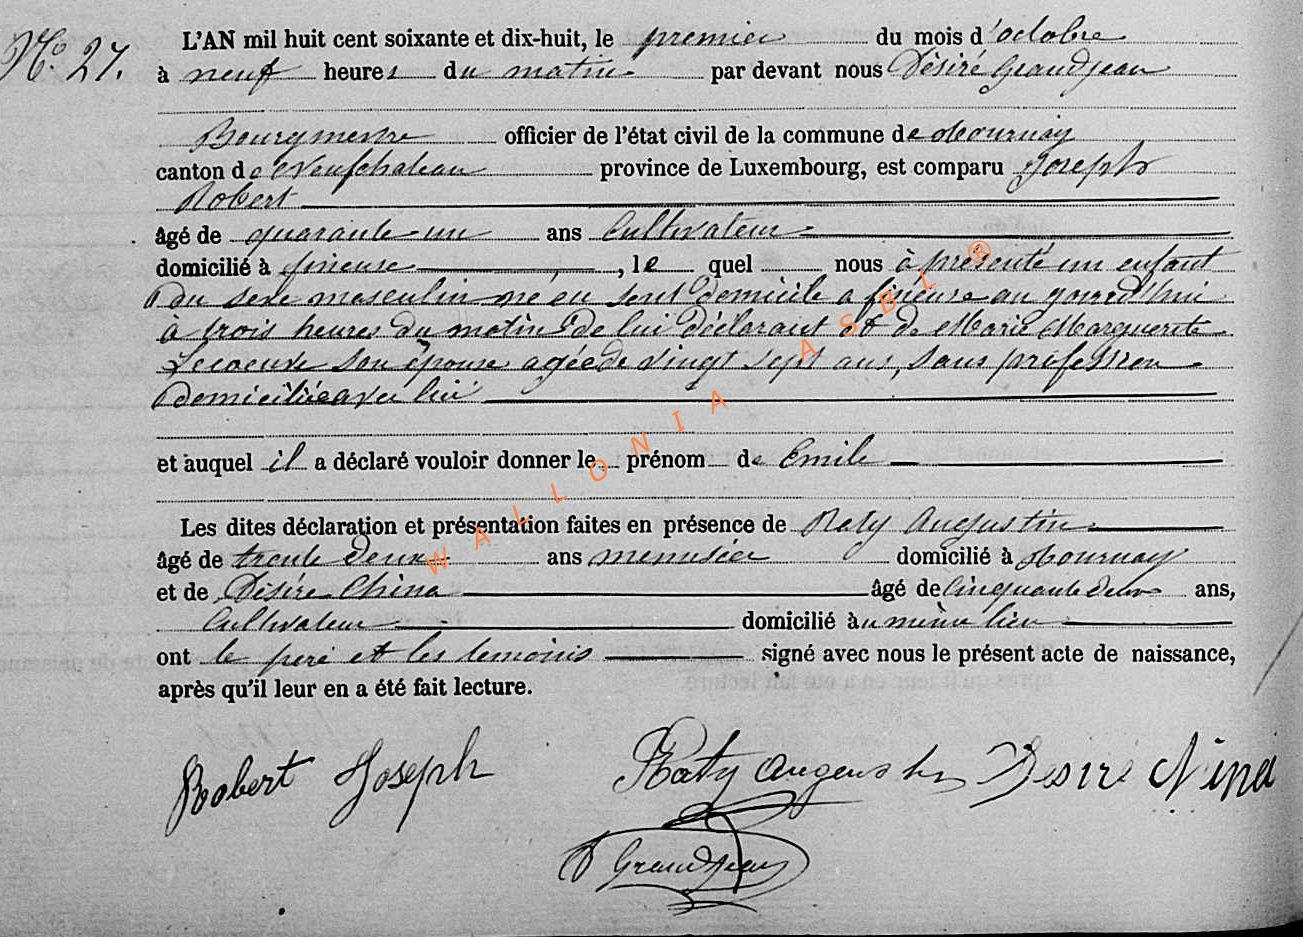 N.° 27.
L'AN mil huit cent soixante et dix-huit, le premier du mois d'octobre
à neuf heures du matin par devant nous Désiré Grandjean
Bourgmestre officier de l'état civil de la commune de Tournay
canton de Neufchateau province de Luxembourg, est comparu Joseph
Robert
âgé de quarante-un ans Cultivateur
domicilié à , le quel nous à présenté un enfant
du sexe masculin né en sont domicile a au jourd'hui
à trois heures du matin de lui déclarant et de Marie Marguerite
son épouse agée de vingt sept ans, sans profession
domiciliée avec lui
et auquel il a déclaré vouloir donner le prénom de Emile
Les dites déclaration et présentation faites en présence de Raty Augustin
âgé de trente deux ans menusier domicilié à Tournay
et de Désiré âgé de cinquante deux ans,
Cultivateur domicilié au même lieu
ont le peré et les temoins signé avec nous le présent acte de naissance,
après qu'il leur en a été fait lecture.
Robert Joseph Raty Désiré
Grandjean
WALLONIA ASBL ®